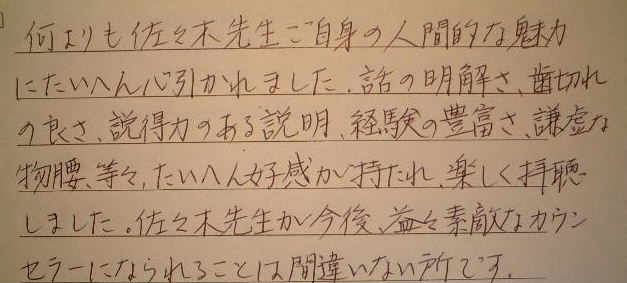 何よりも佐々木先生ご自身の人間的な魅力
にたいへん心引かれました。話の明解さ、歯切れ
の良さ、説得力のある説明、経験の豊富さ、謙虚な
物腰、等々、たいへん好感が持たれ、楽しく拝聴
しました。佐々木先生が今後、益々素敵なカウン
セラーになられることは間違いない所です。